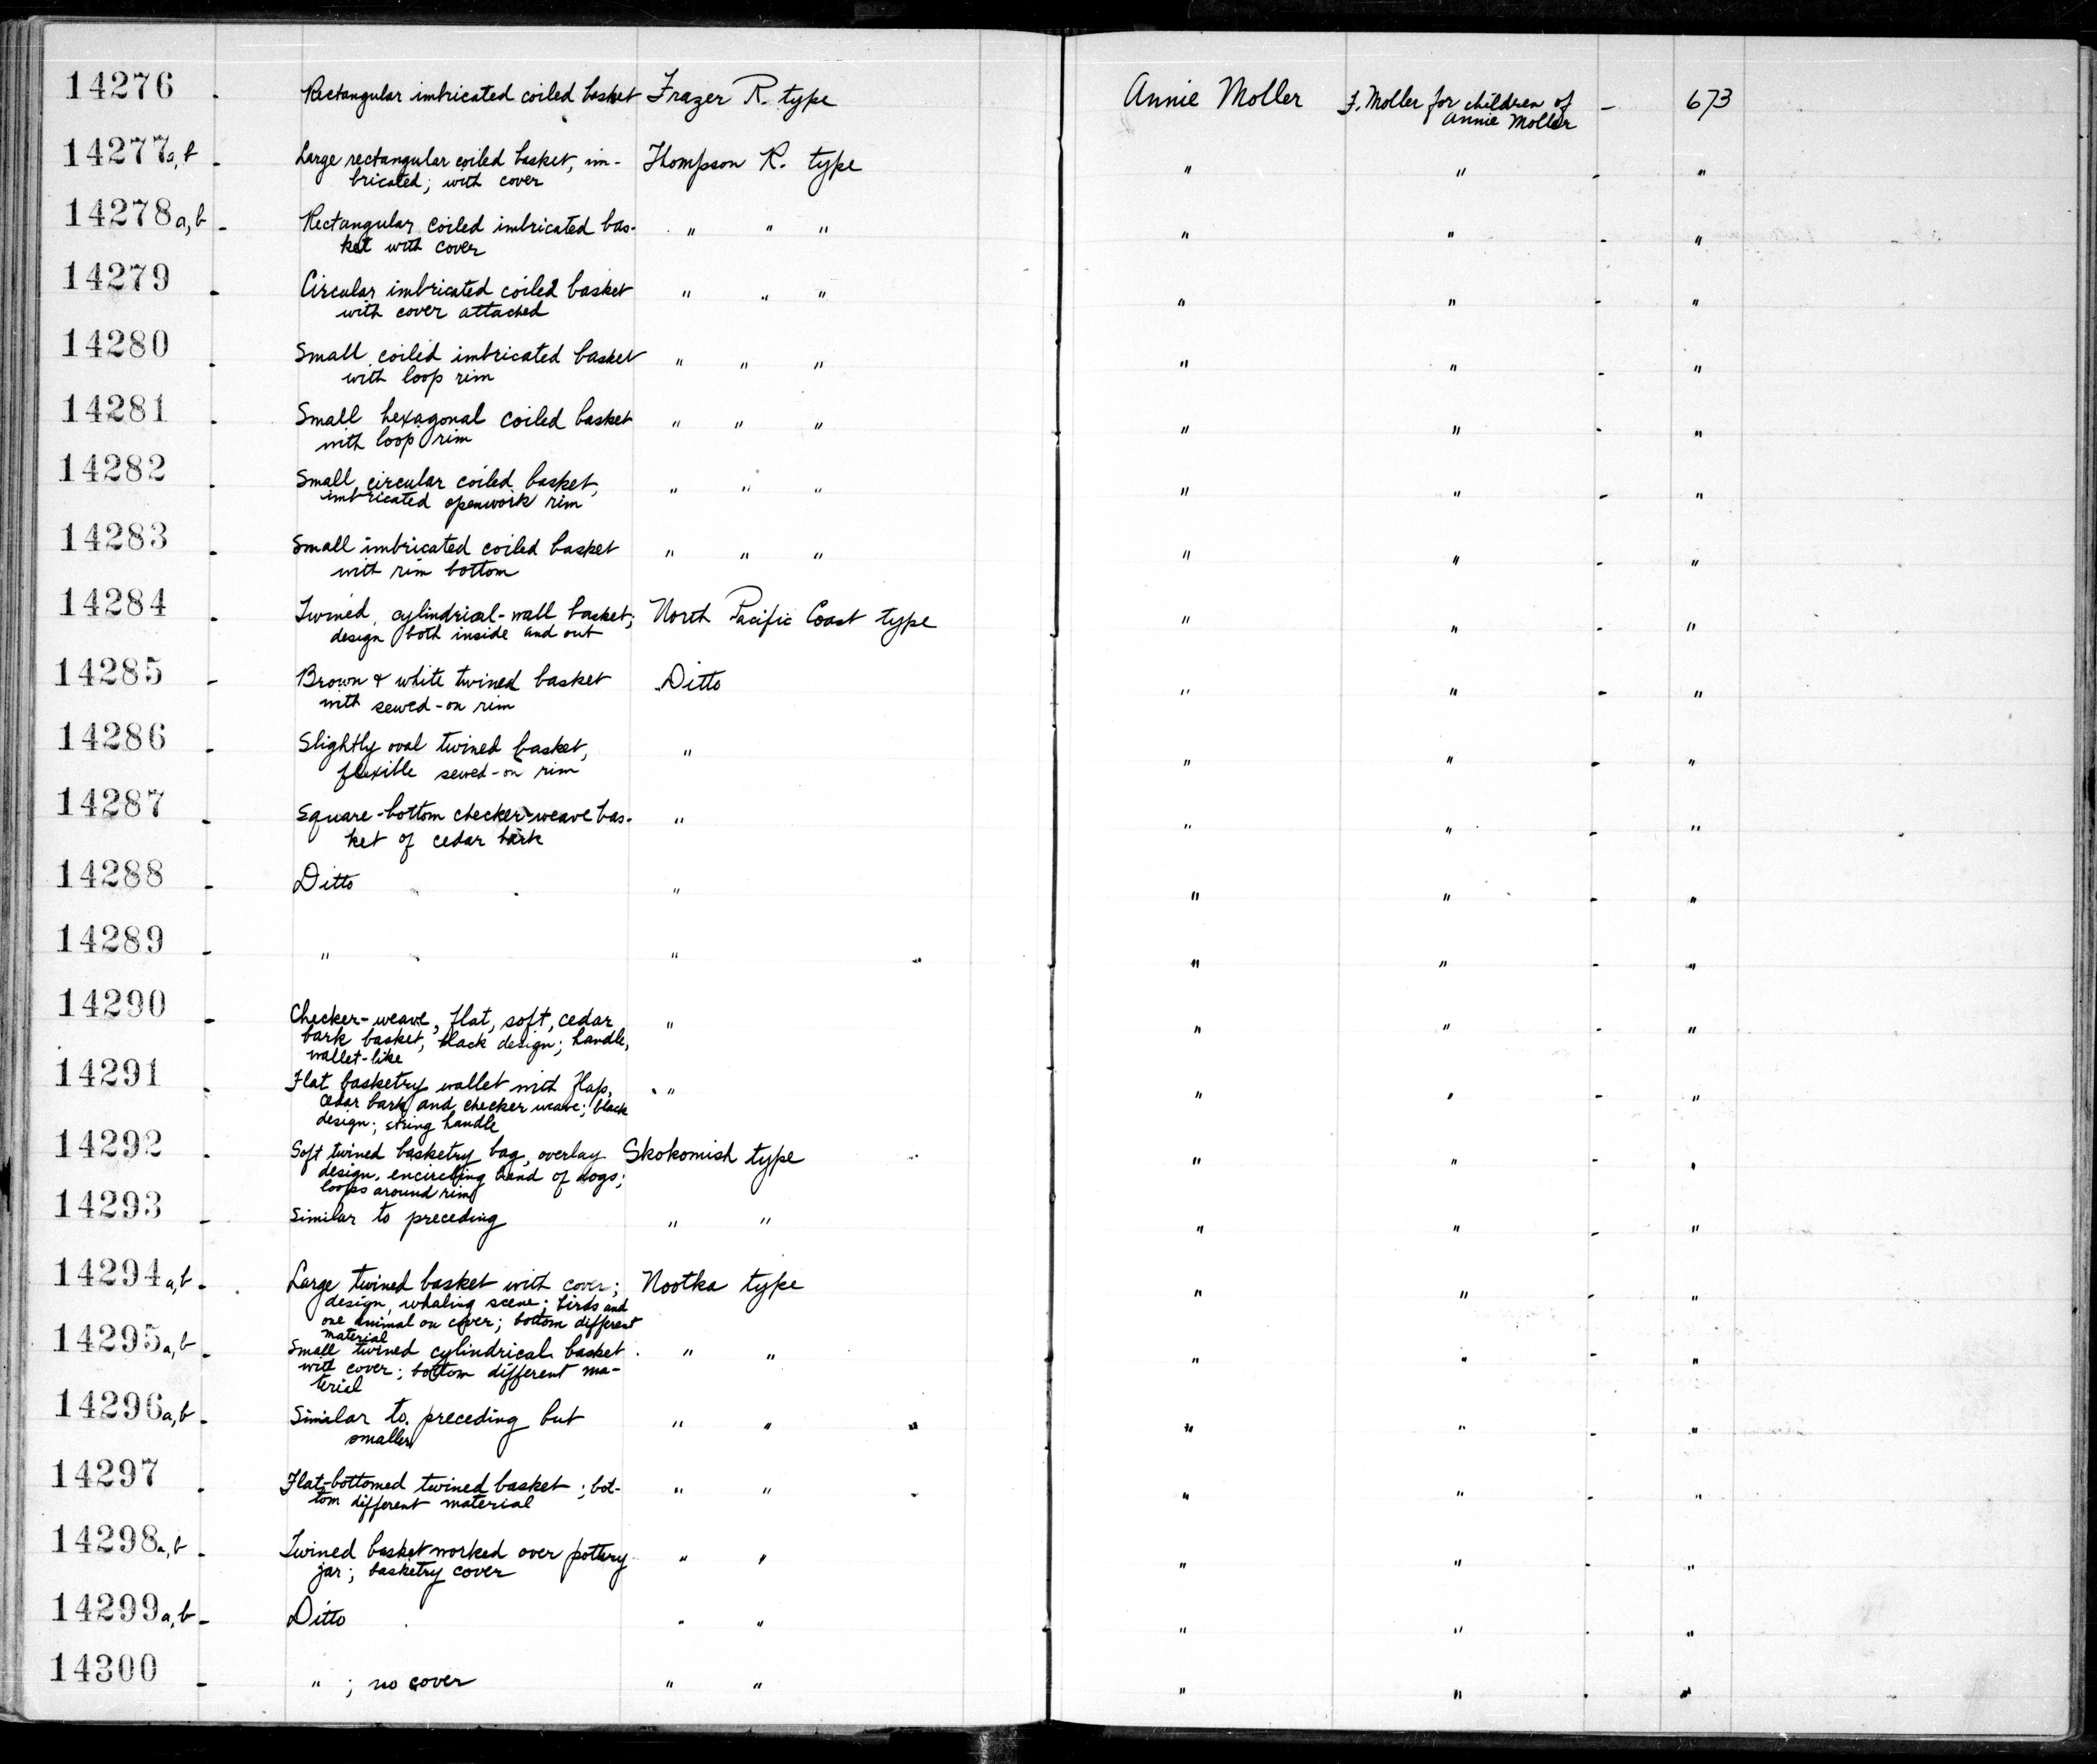 14276 . Rectangular imbricated coiled basket Frazer R. type Annie Moller F. Moller for children of - 673
Annie Moller
14277a,b - Large rectangular coiled basket, im- Thompson R. type " " - "
bricated; with cover
14278a,b - Rectangular coiled imbricated bas- " " " " " - "
ket with cover
14279 - Circular imbricated coiled basket " " " " " - "
with cover attached
14280 . Small coiled imbricated basket " " " " " - "
with loop rim
14281 . Small hexagonal coiled basket " " " " " - "
with loop rim
14282 . Small circular coiled basket, " " " " " - "
imbricated openwork rim
14283 - Small imbricated coiled basket " " " " " - "
with rim bottom
14284 . Twined, cylindrical-wall basket; North Pacific Coast type " " - "
design both inside and out
14285 - Brown & white twined basket Ditto " " - "
with sewed-on rim
14286 - Slightly oval twined basket, " " " - "
flexible sewed-on rim
14287 - Square-bottom checker-weave bas- " " " - "
ket of cedar bark
14288 - Ditto " " " - "
14289 - " " " " - "
14290 - Checker-weave, flat, soft, cedar " " " - "
bark basket, black design; handle,
wallet-like
14291 . Flat basketry wallet with flap, " " " - "
cedar bark and checker weave; black
design; string handle
14292 . Soft twined basketry bag, overlay Skokomish type " " - "
design, encircling band of dogs;
loops around rim
14293 - Similar to preceding " " " " - "
14294a,b - Large twined basket with cover; Nootka type " " - "
design, whaling scene; birds and
one animal on cover; bottom different
material
14295a,b - Small twined cylindrical basket " " " " - "
with cover; bottom different ma-
terial
14296a,b - Similar to preceding but " " " " - "
smaller
14297 . Flat-bottomed twined basket; bot- " " " " - "
tom different material
14298a,b - Twined basket worked over pottery " " " " - "
jar; basketry cover
14299a,b - Ditto " " " " - "
14300 - " ; no cover " " " " - "